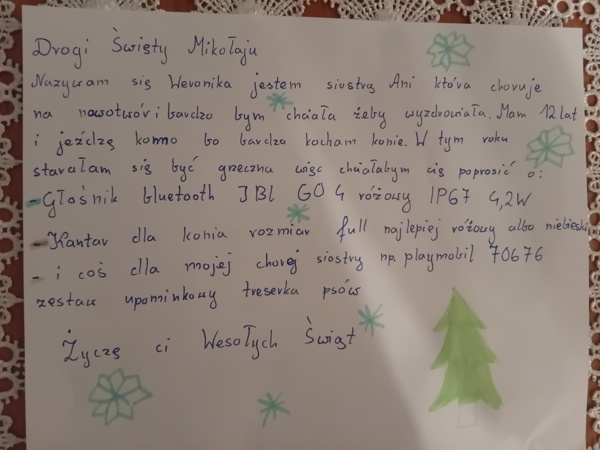 Drogi Święty Mikołaju
Nazywam się Weronika jestem siostrą Ani która choruje
na nowotwór i bardzo bym chciała żeby wyzdrowiała. Mam 12 lat
i jeżdżę konno bo bardzo kocham konie. W tym roku
starałam się być grzeczna więc chciałabym cię poprosić o:
-Głośnik bluetooth JBl GO 4 różowy IP67 4,2W
-Kantar dla konia rozmiar full najlepiej różowy albo niebieski
- i coś dla mojej chorej siostry np. playmobil 70676
zestaw upominkowy treserka psów
Życzę ci Wesołych Świąt